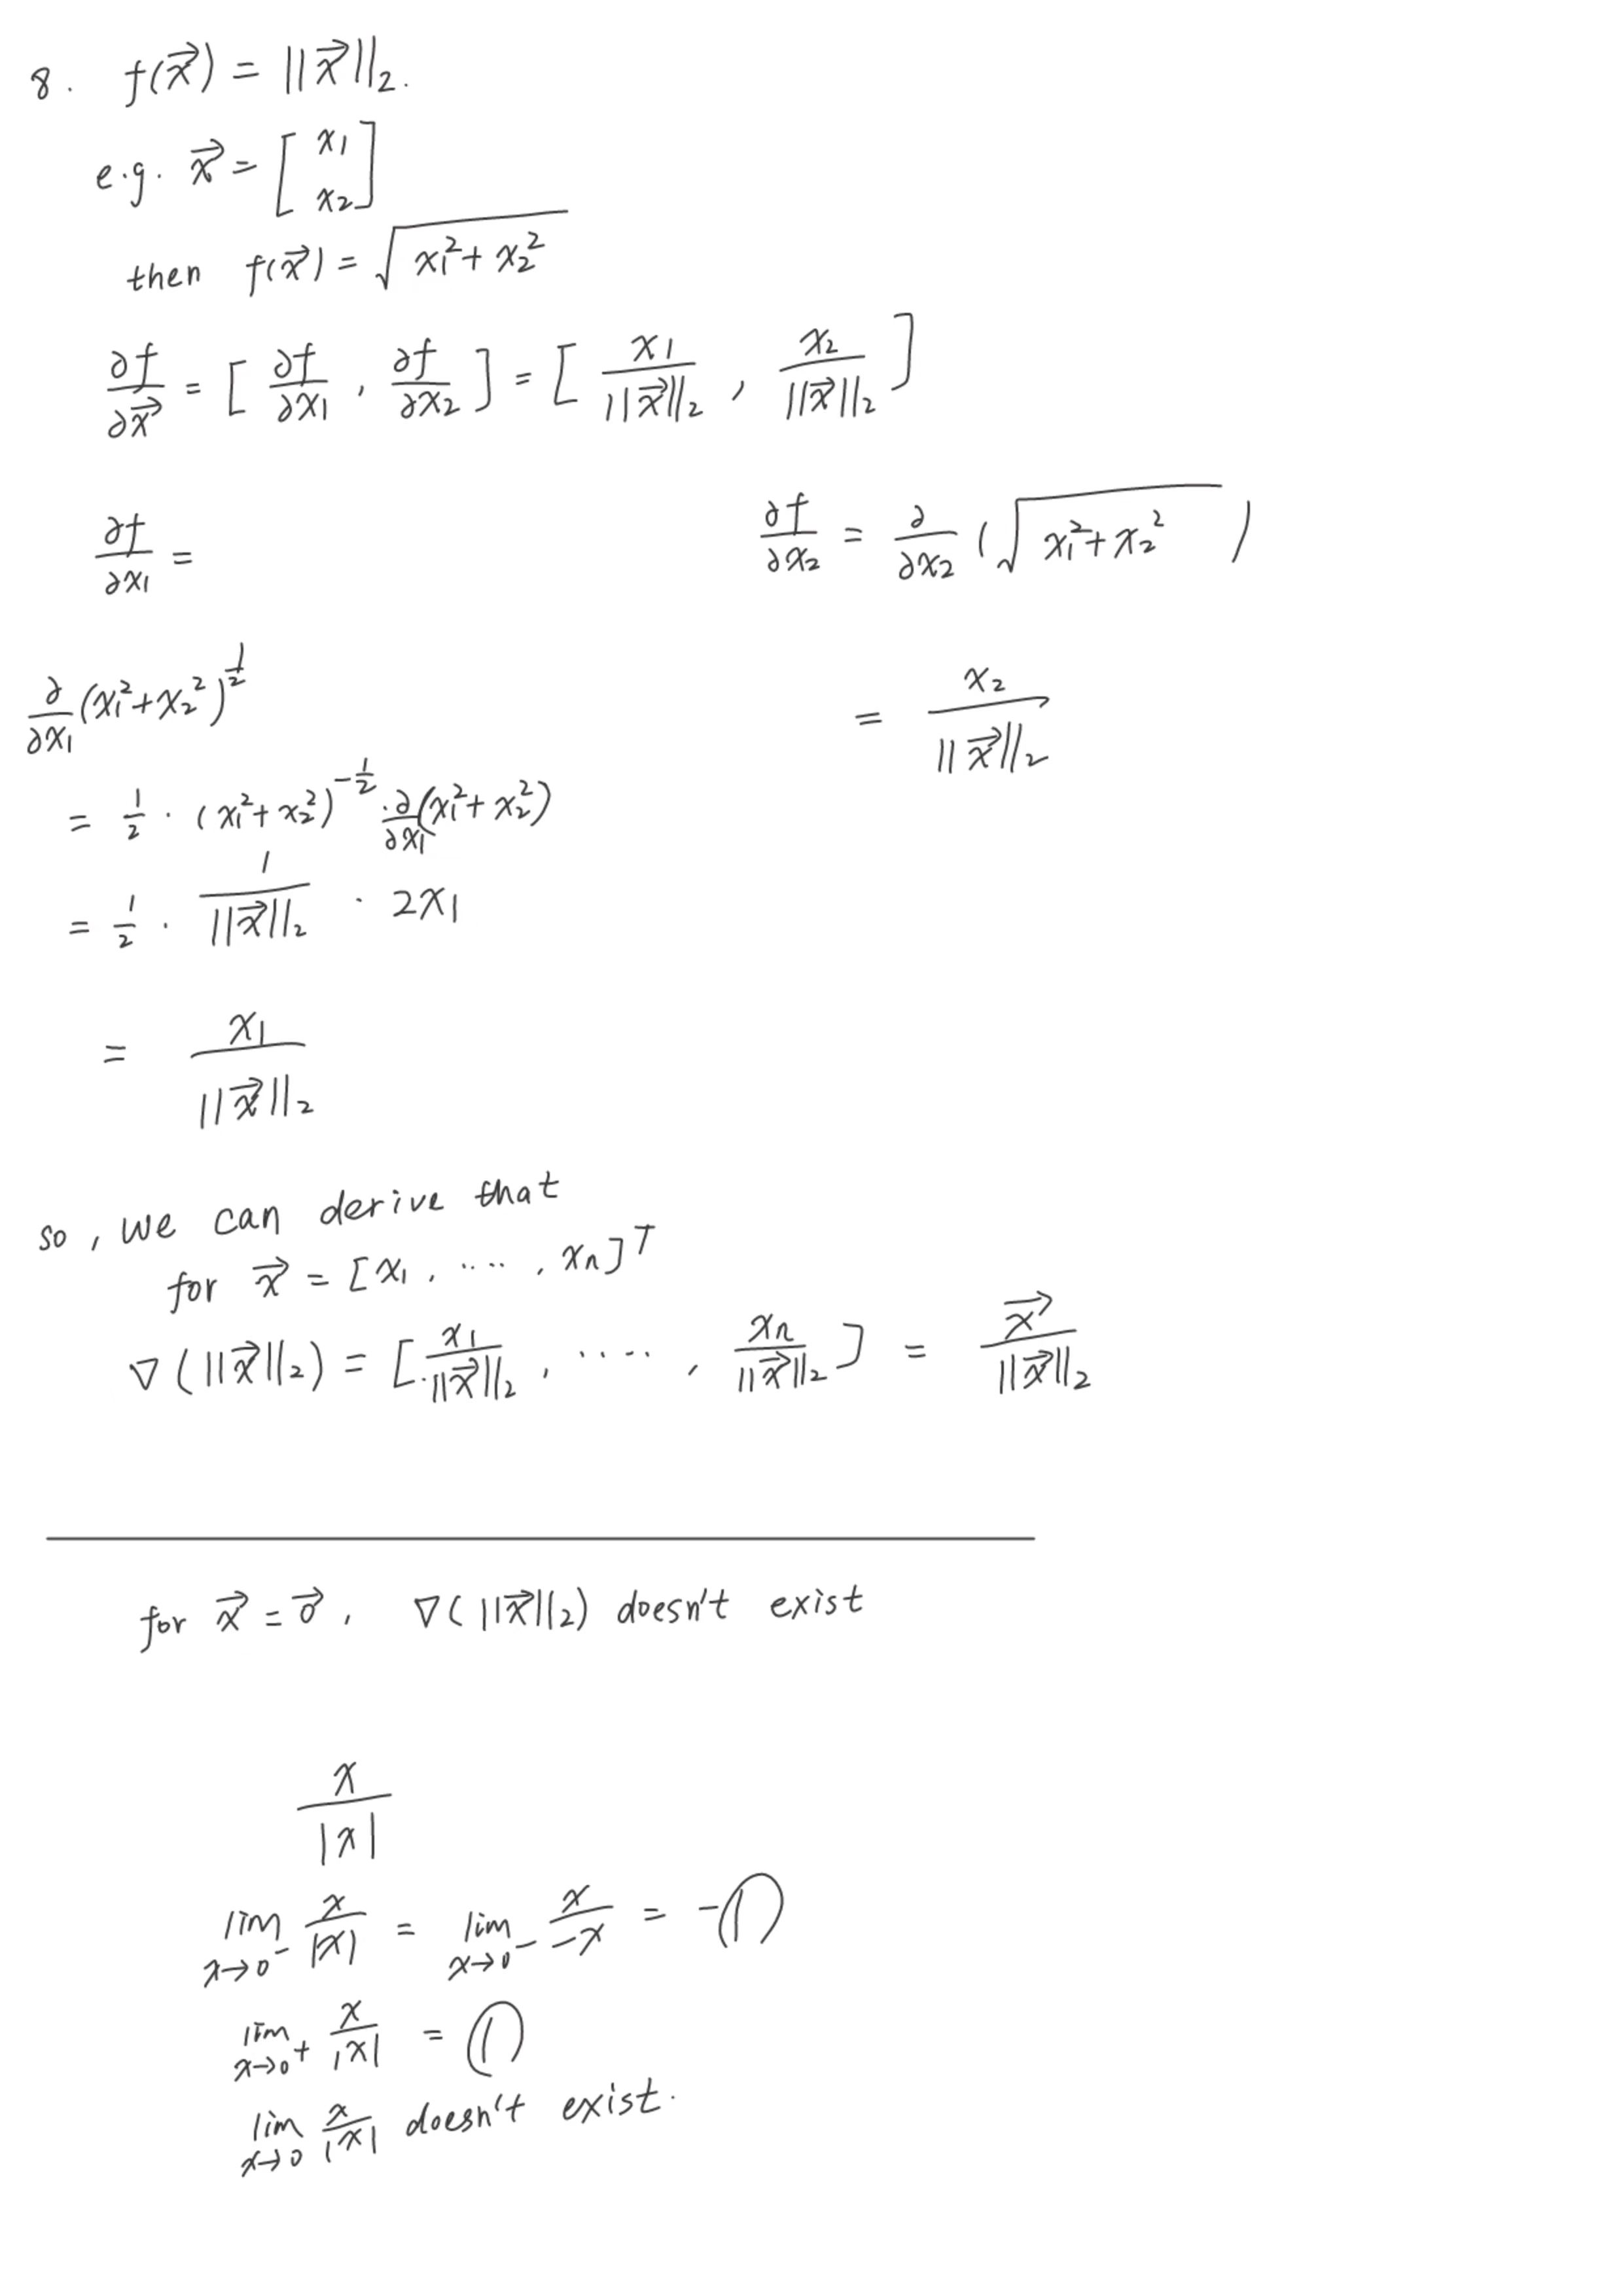 8. f(x⃗) = ||x⃗||₂.
e.g. x⃗ = [x₁ x₂]
then f(x⃗) = √(x₁² + x₂²)
∂f/∂x⃗ = [∂f/∂x₁, ∂f/∂x₂] = [x₁/||x⃗||₂, x₂/||x⃗||₂]
∂f/∂x₁ =
∂/∂x₁ (x₁² + x₂²)^(1/2)
= 1/2 · (x₁² + x₂²)^(-1/2) · ∂/∂x₁ (x₁² + x₂²)
= 1/2 · 1/||x⃗||₂ · 2x₁
= x₁/||x⃗||₂
∂f/∂x₂ = ∂/∂x₂ (√(x₁² + x₂²))
= x₂/||x⃗||₂
so, we can derive that
for x⃗ = [x₁, ····, xₙ]ᵀ
∇(||x⃗||₂) = [x₁/||x⃗||₂, ····, xₙ/||x⃗||₂] = x⃗/||x⃗||₂
for x⃗ = 0⃗, ∇(||x⃗||₂) doesn't exist
x/|x|
lim x→0⁻ x/|x| = lim x→0⁻ x/-x = -1
lim x→0⁺ x/|x| = 1
lim x→0 x/|x| doesn't exist.